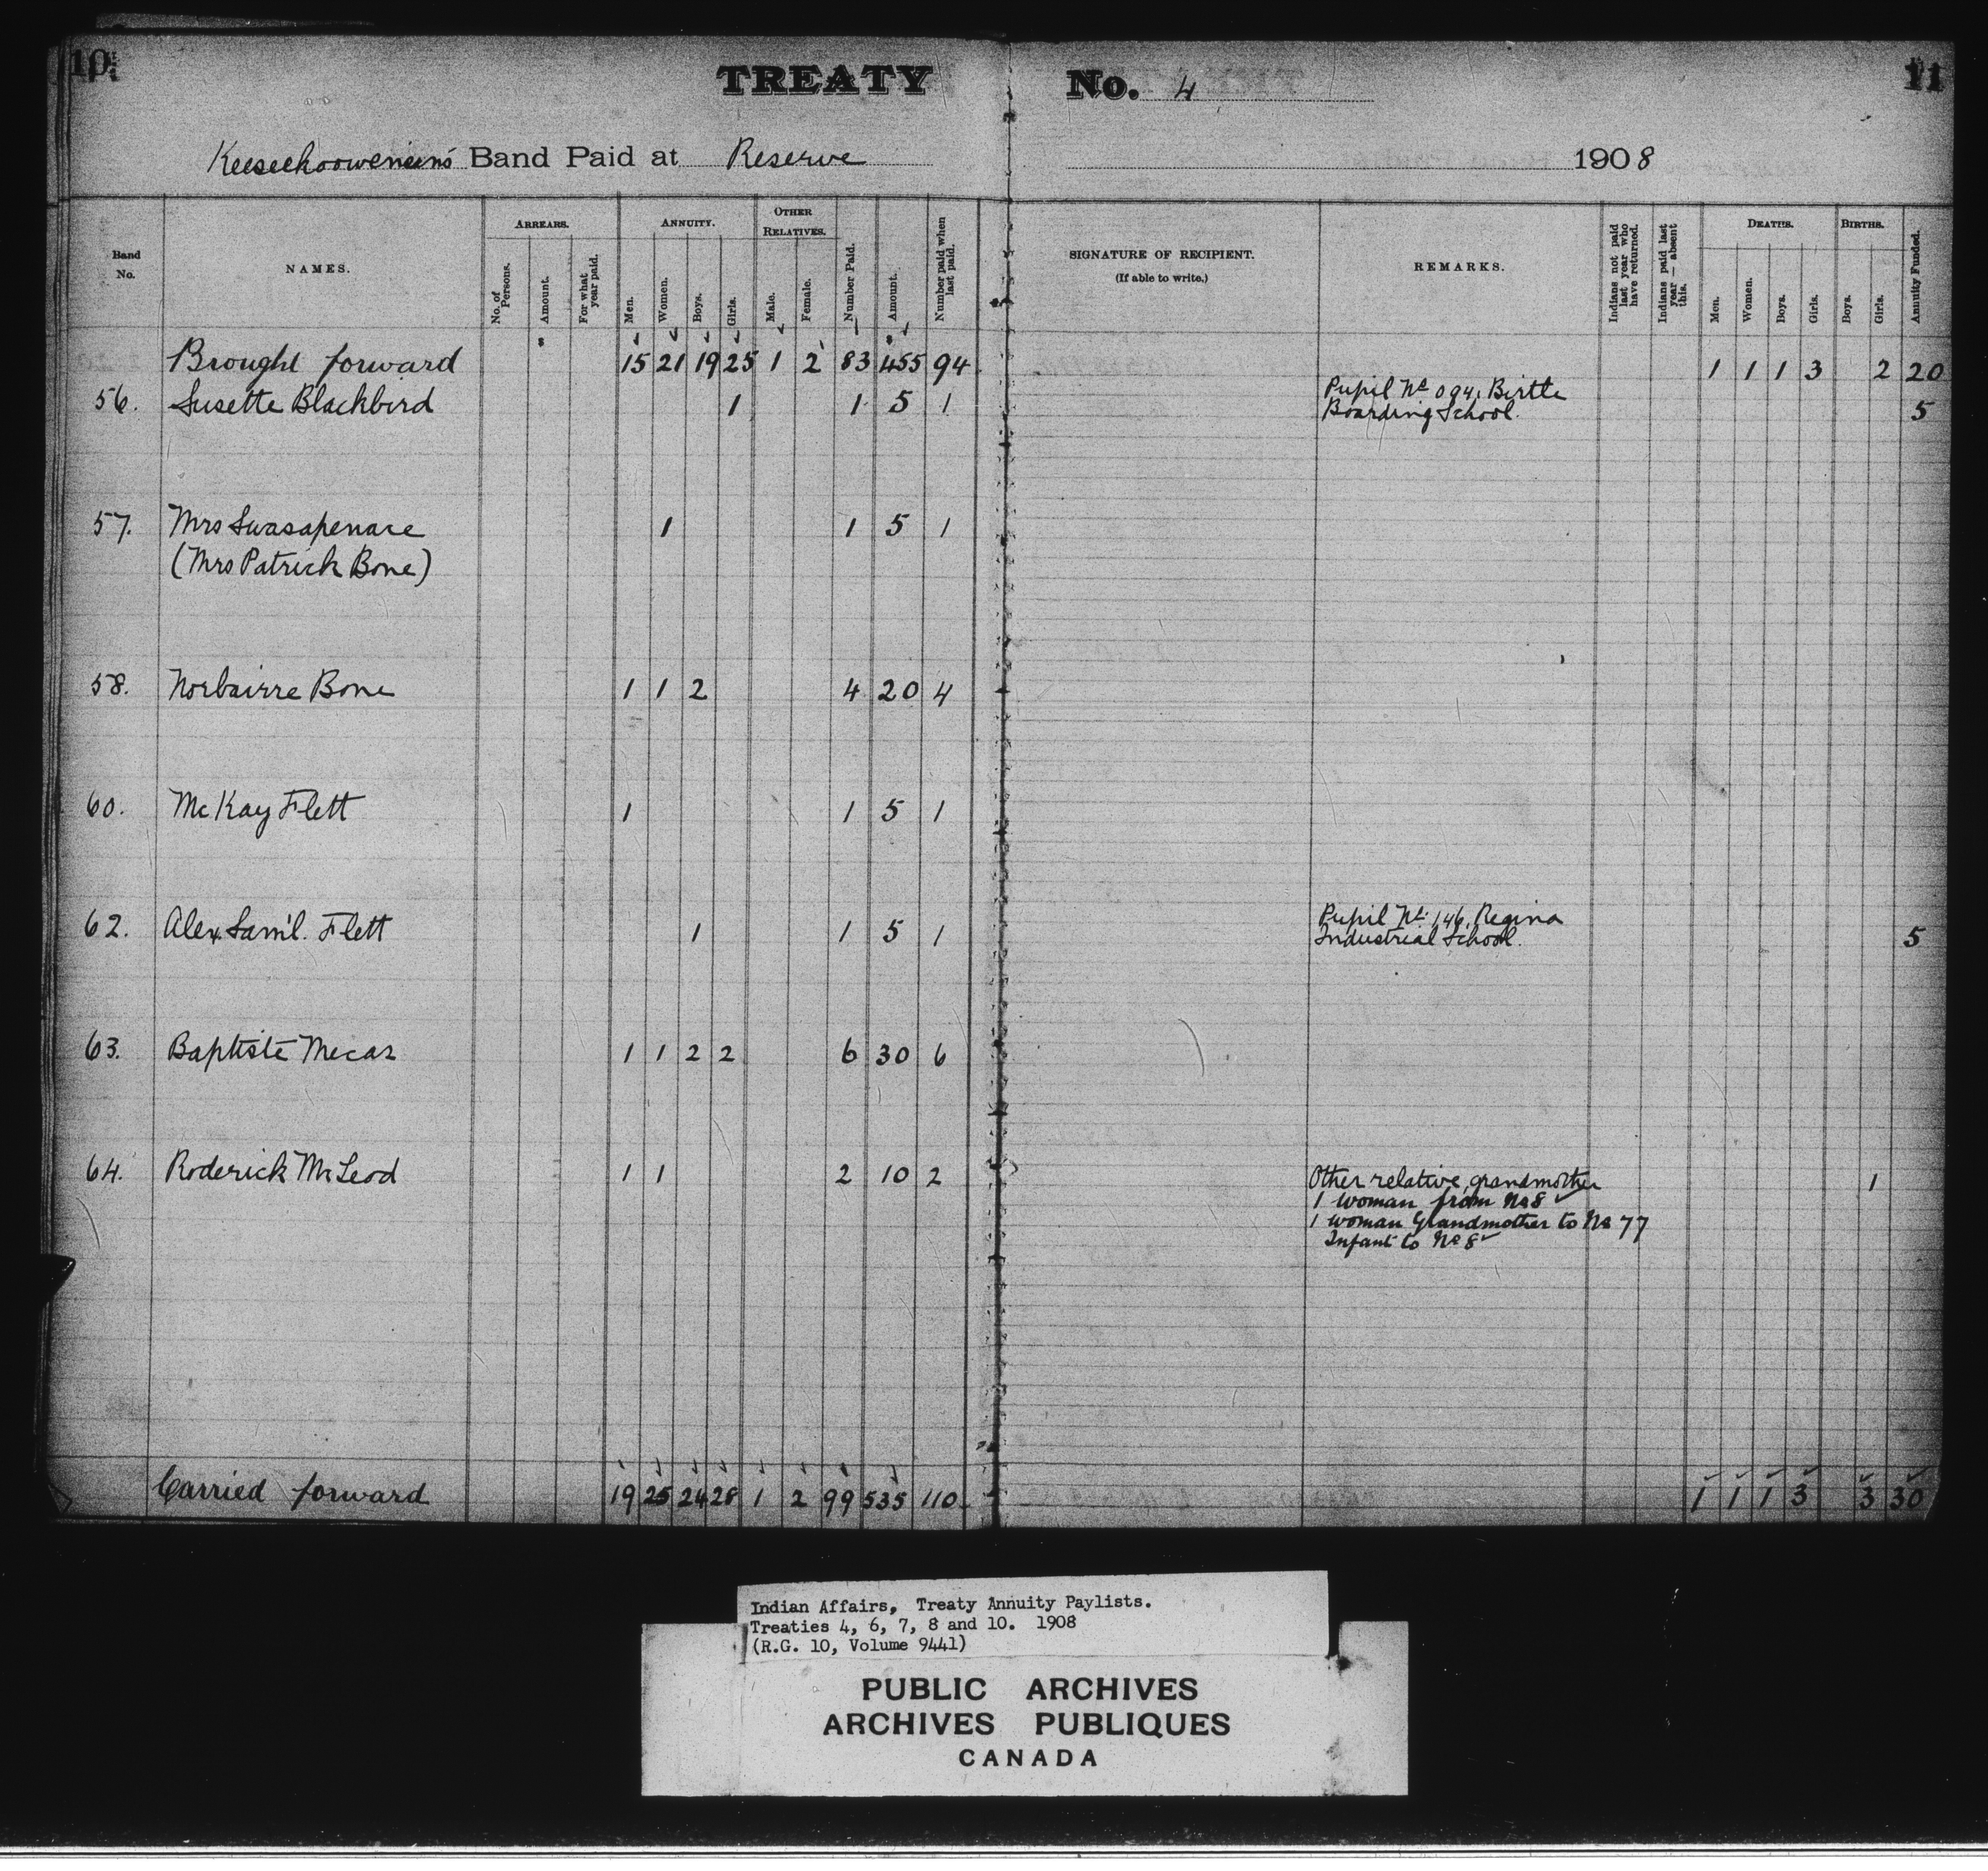 10
TREATY No. 4
11
Keeseekoowenin's Band Paid at Reserve 1908
Band No.
NAMES.
ARREARS.
No. of Persons.
Amount.
For what year paid.
ANNUITY.
Men.
Women.
Boys.
Girls.
OTHER RELATIVES.
Male.
Female.
Number Paid.
Amount.
Number paid when last paid.
SIGNATURE OF RECIPIENT.
(If able to write.)
REMARKS.
Indians not paid last year who have returned.
Indians paid last year — absent this.
DEATHS.
Men.
Women.
Boys.
Girls.
BIRTHS.
Boys.
Girls.
Annuity Funded.
Brought forward 15 21 19 25 1 2 83 455 94 1 1 1 3 2 20
56. Susette Blackbird 1 1 5 1 Pupil No 094, Birtle
Boarding School. 5
57. Mrs Swasapenace 1 1 5 1
(Mrs Patrick Bone)
58. Norbairre Bone 1 1 2 4 20 4
60. McKay Flett 1 1 5 1
62. Alex. Sam'l. Flett 1 1 5 1 Pupil No. 146, Regina
Industrial School. 5
63. Baptiste Mecas 1 1 2 2 6 30 6
64. Roderick McLeod 1 1 2 10 2 Other relative, grandmother 1
1 woman from No 8
1 woman Grandmother to No 77
Infant to No 8
Carried forward 19 25 24 28 1 2 99 535 110 1 1 1 3 3 30
Indian Affairs, Treaty Annuity Paylists.
Treaties 4, 6, 7, 8 and 10. 1908
(R.G. 10, Volume 9441)
PUBLIC ARCHIVES
ARCHIVES PUBLIQUES
CANADA